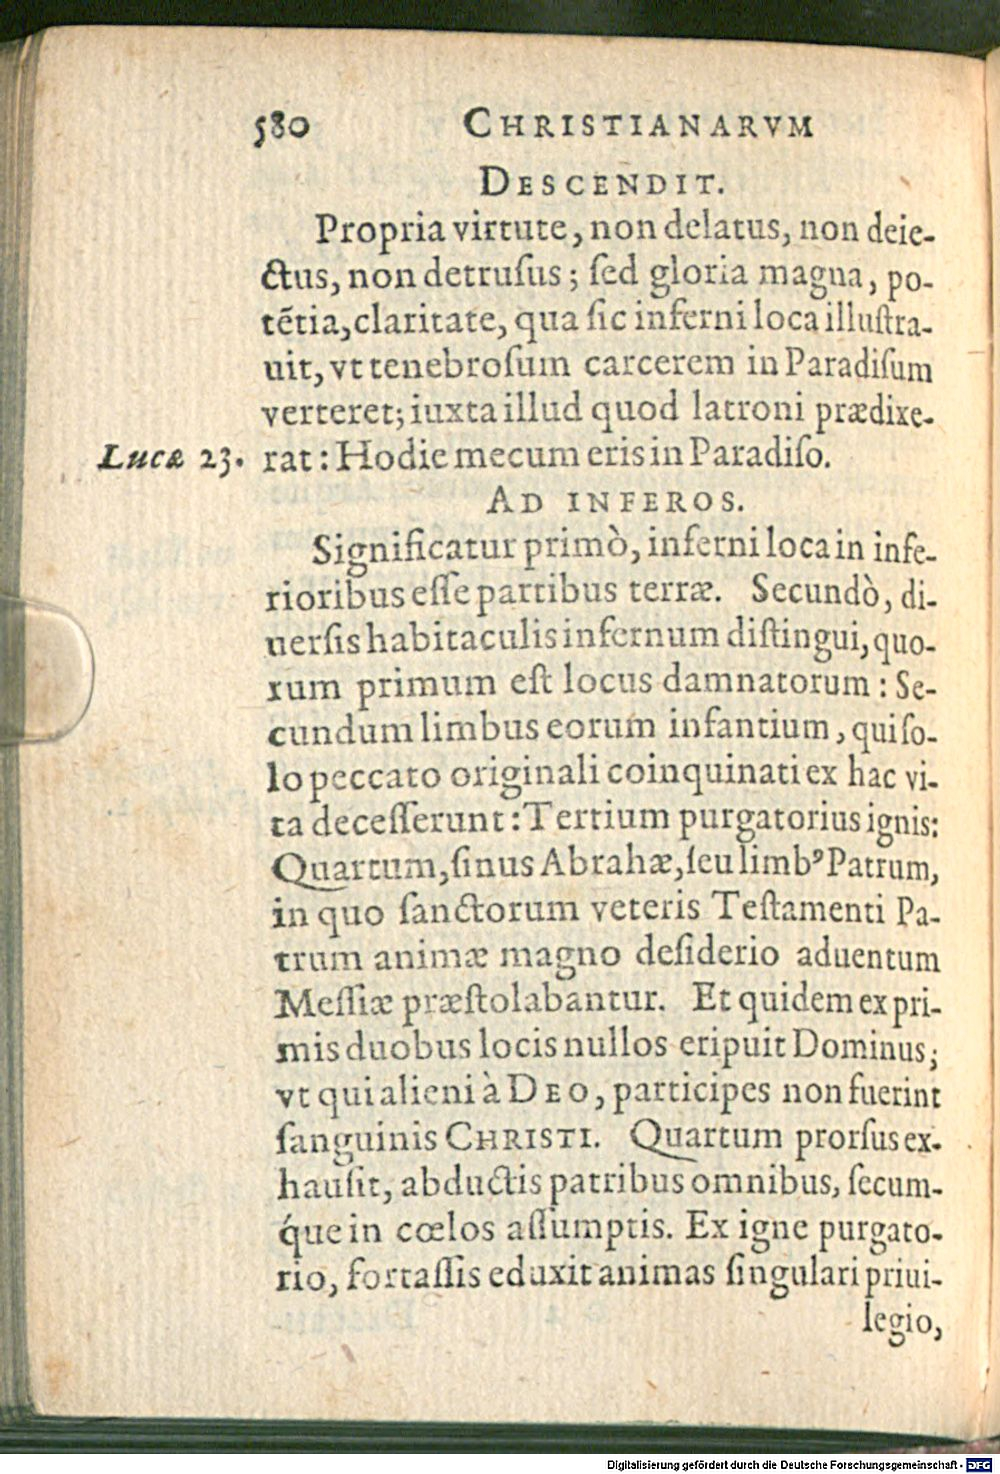 580 CHRISTIANARVM
DESCENDIT.
Propria virtute, non delatus, non deie-
ctus, non detruſus; ſed gloria magna, po-
tẽtia, claritate, qua ſic inferni loca illuſtra-
uit, vt tenebroſum carcerem in Paradiſum
verteret; iuxta illud quod latroni prædixe-
Lucæ 23. rat: Hodie mecum eris in Paradiſo.
AD INFEROS.
Significatur primò, inferni loca in infe-
rioribus eſſe partibus terræ. Secundò, di-
uerſis habitaculis infernum diſtingui, quo-
rum primum eſt locus damnatorum: Se-
cundum limbus eorum infantium, qui ſo-
lo peccato originali coinquinati ex hac vi-
ta deceſſerunt: Tertium purgatorius ignis:
Quartum, ſinus Abrahæ, ſeu limbꝰ Patrum,
in quo ſanctorum veteris Teſtamenti Pa-
trum animæ magno deſiderio aduentum
Meſſiæ præſtolabantur. Et quidem ex pri-
mis duobus locis nullos eripuit Dominus;
vt qui alieni à DEO, participes non fuerint
ſanguinis CHRISTI. Quartum prorſus ex-
hauſit, abductis patribus omnibus, ſecum-
q́ue in cœlos aſſumptis. Ex igne purgato-
rio, fortaſſis eduxit animas ſingulari priui-
legio,
Digitalisierung gefördert durch die Deutsche Forschungsgemeinschaft - DFG